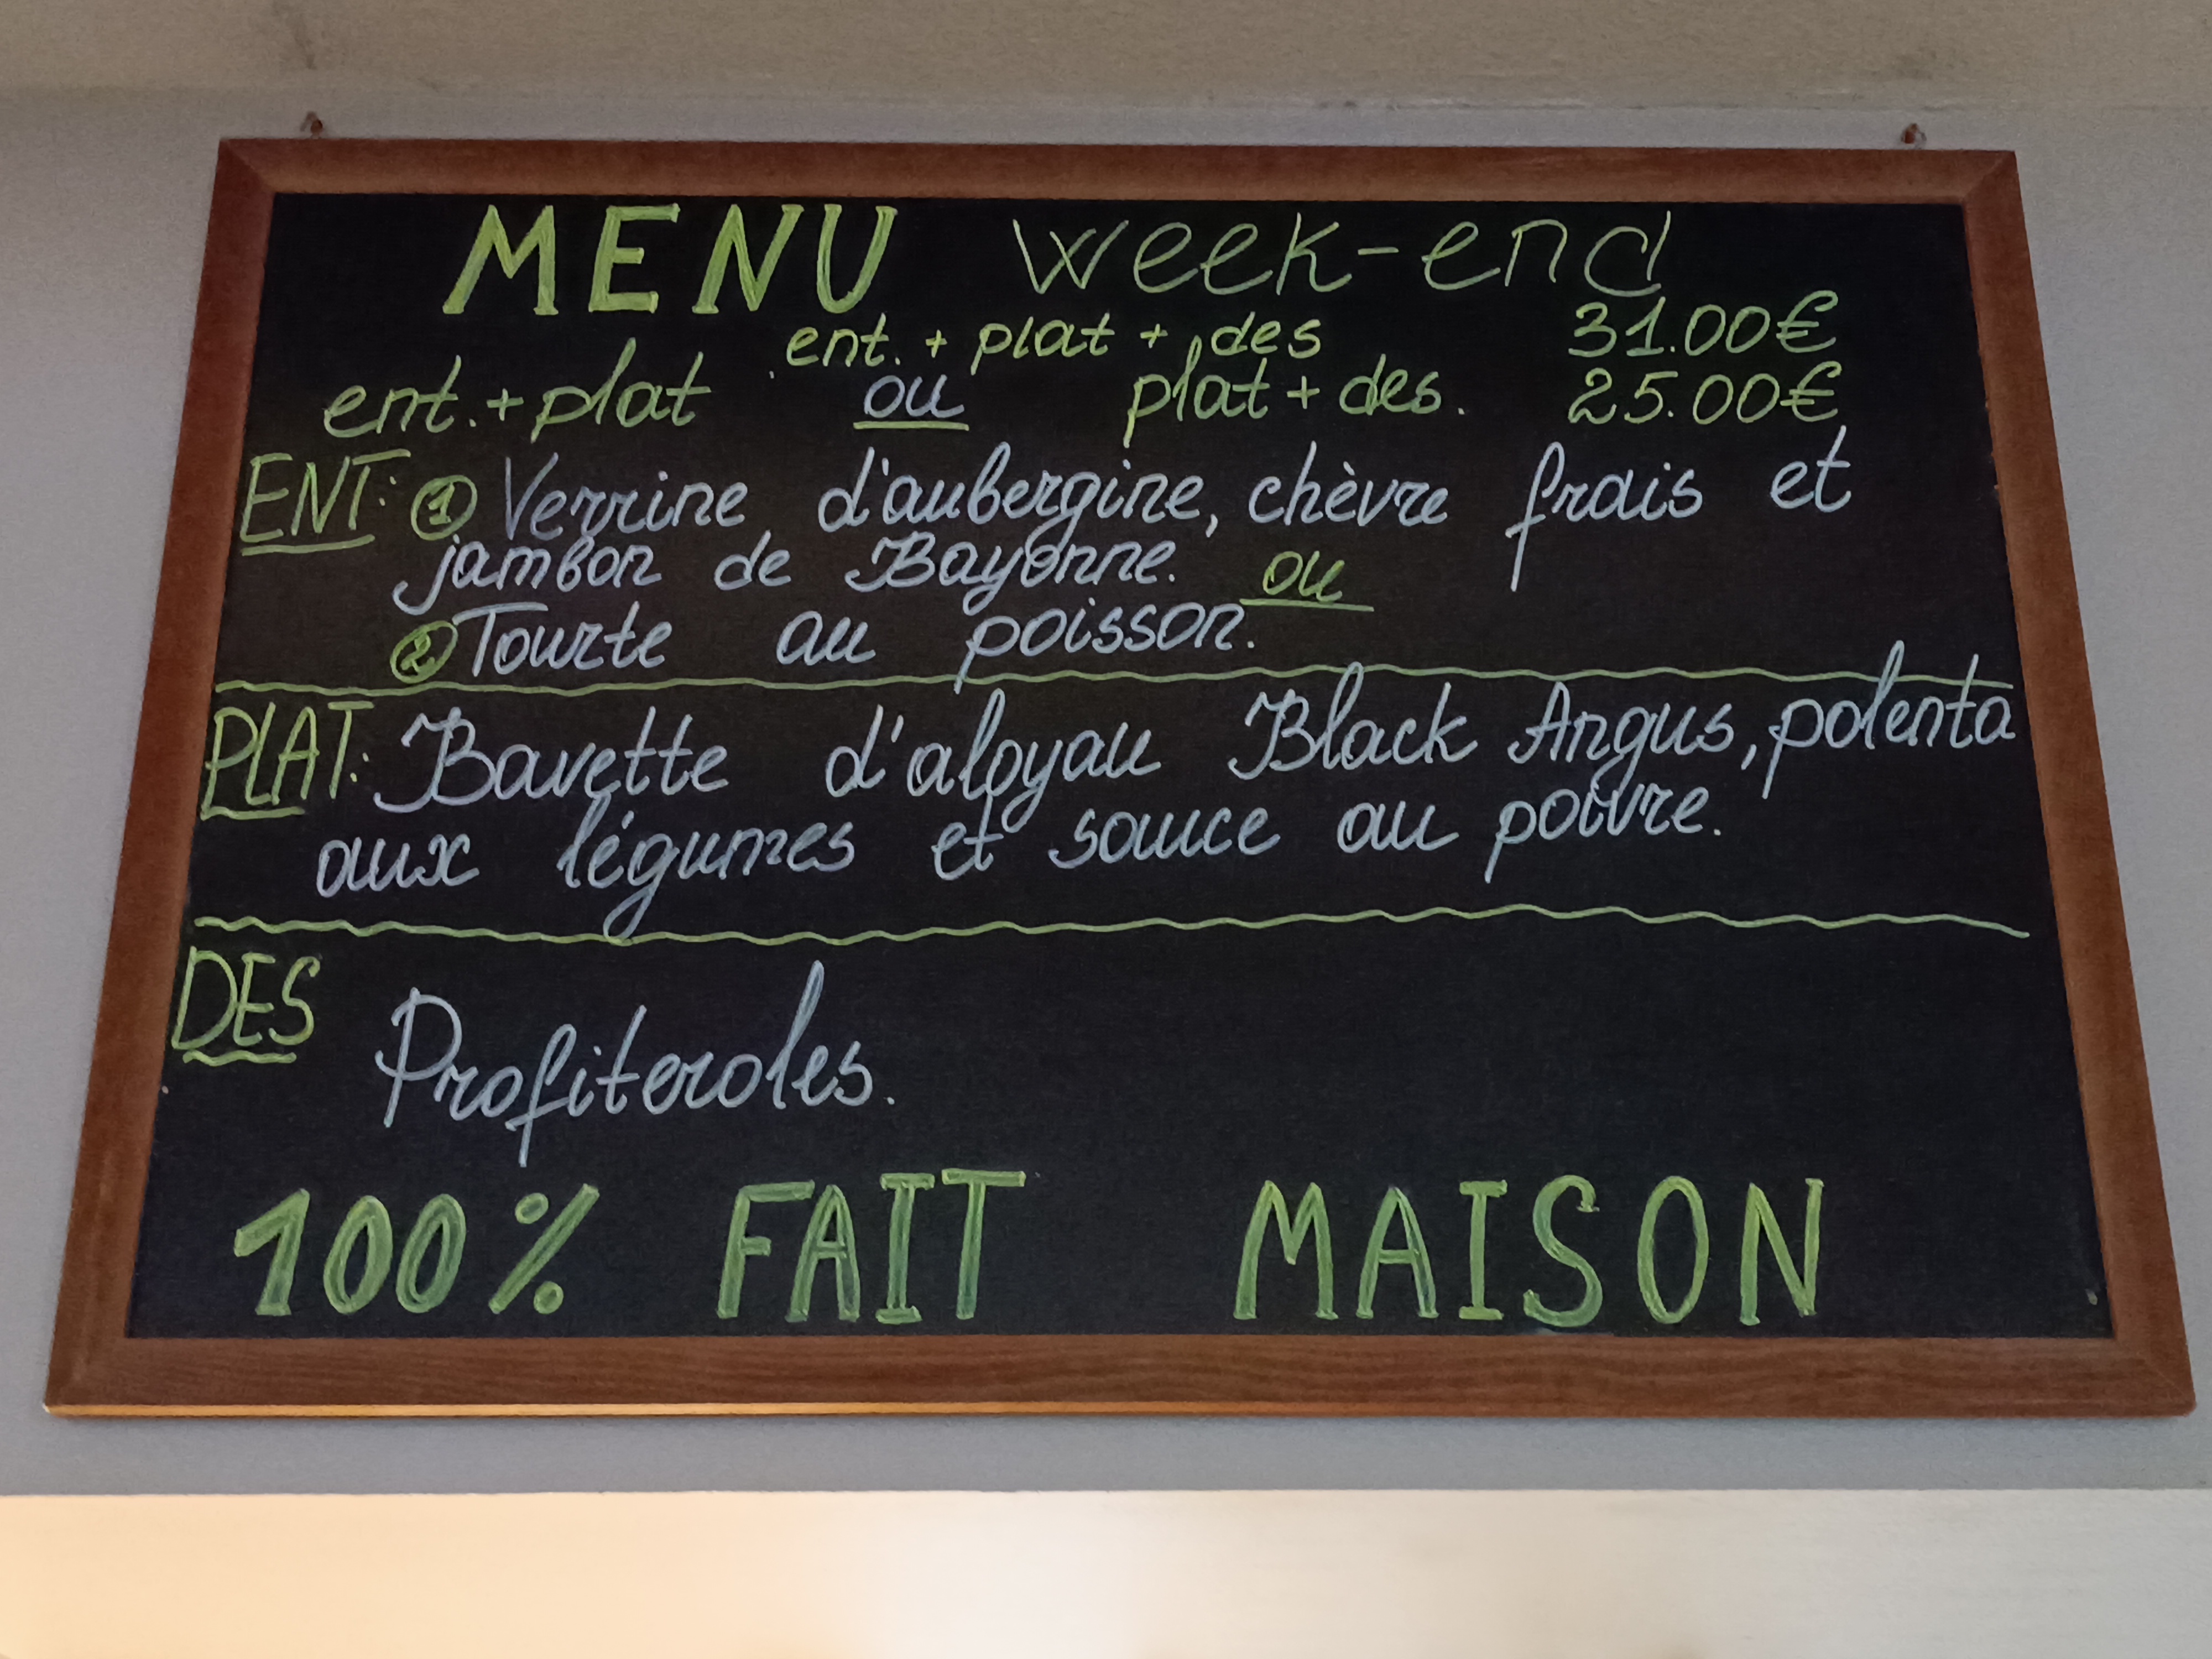 MENU week-end
ent. + plat + des 31.00€
ent. + plat ou plat + des. 25.00€
ENT: 1 Verrine d'aubergine, chèvre frais et
jambon de Bayonne. ou
2 Tourte au poisson.
PLAT: Bavette d'aloyau Black Angus, polenta
aux légumes et sauce au poivre.
DES
Profiteroles.
100% FAIT MAISON